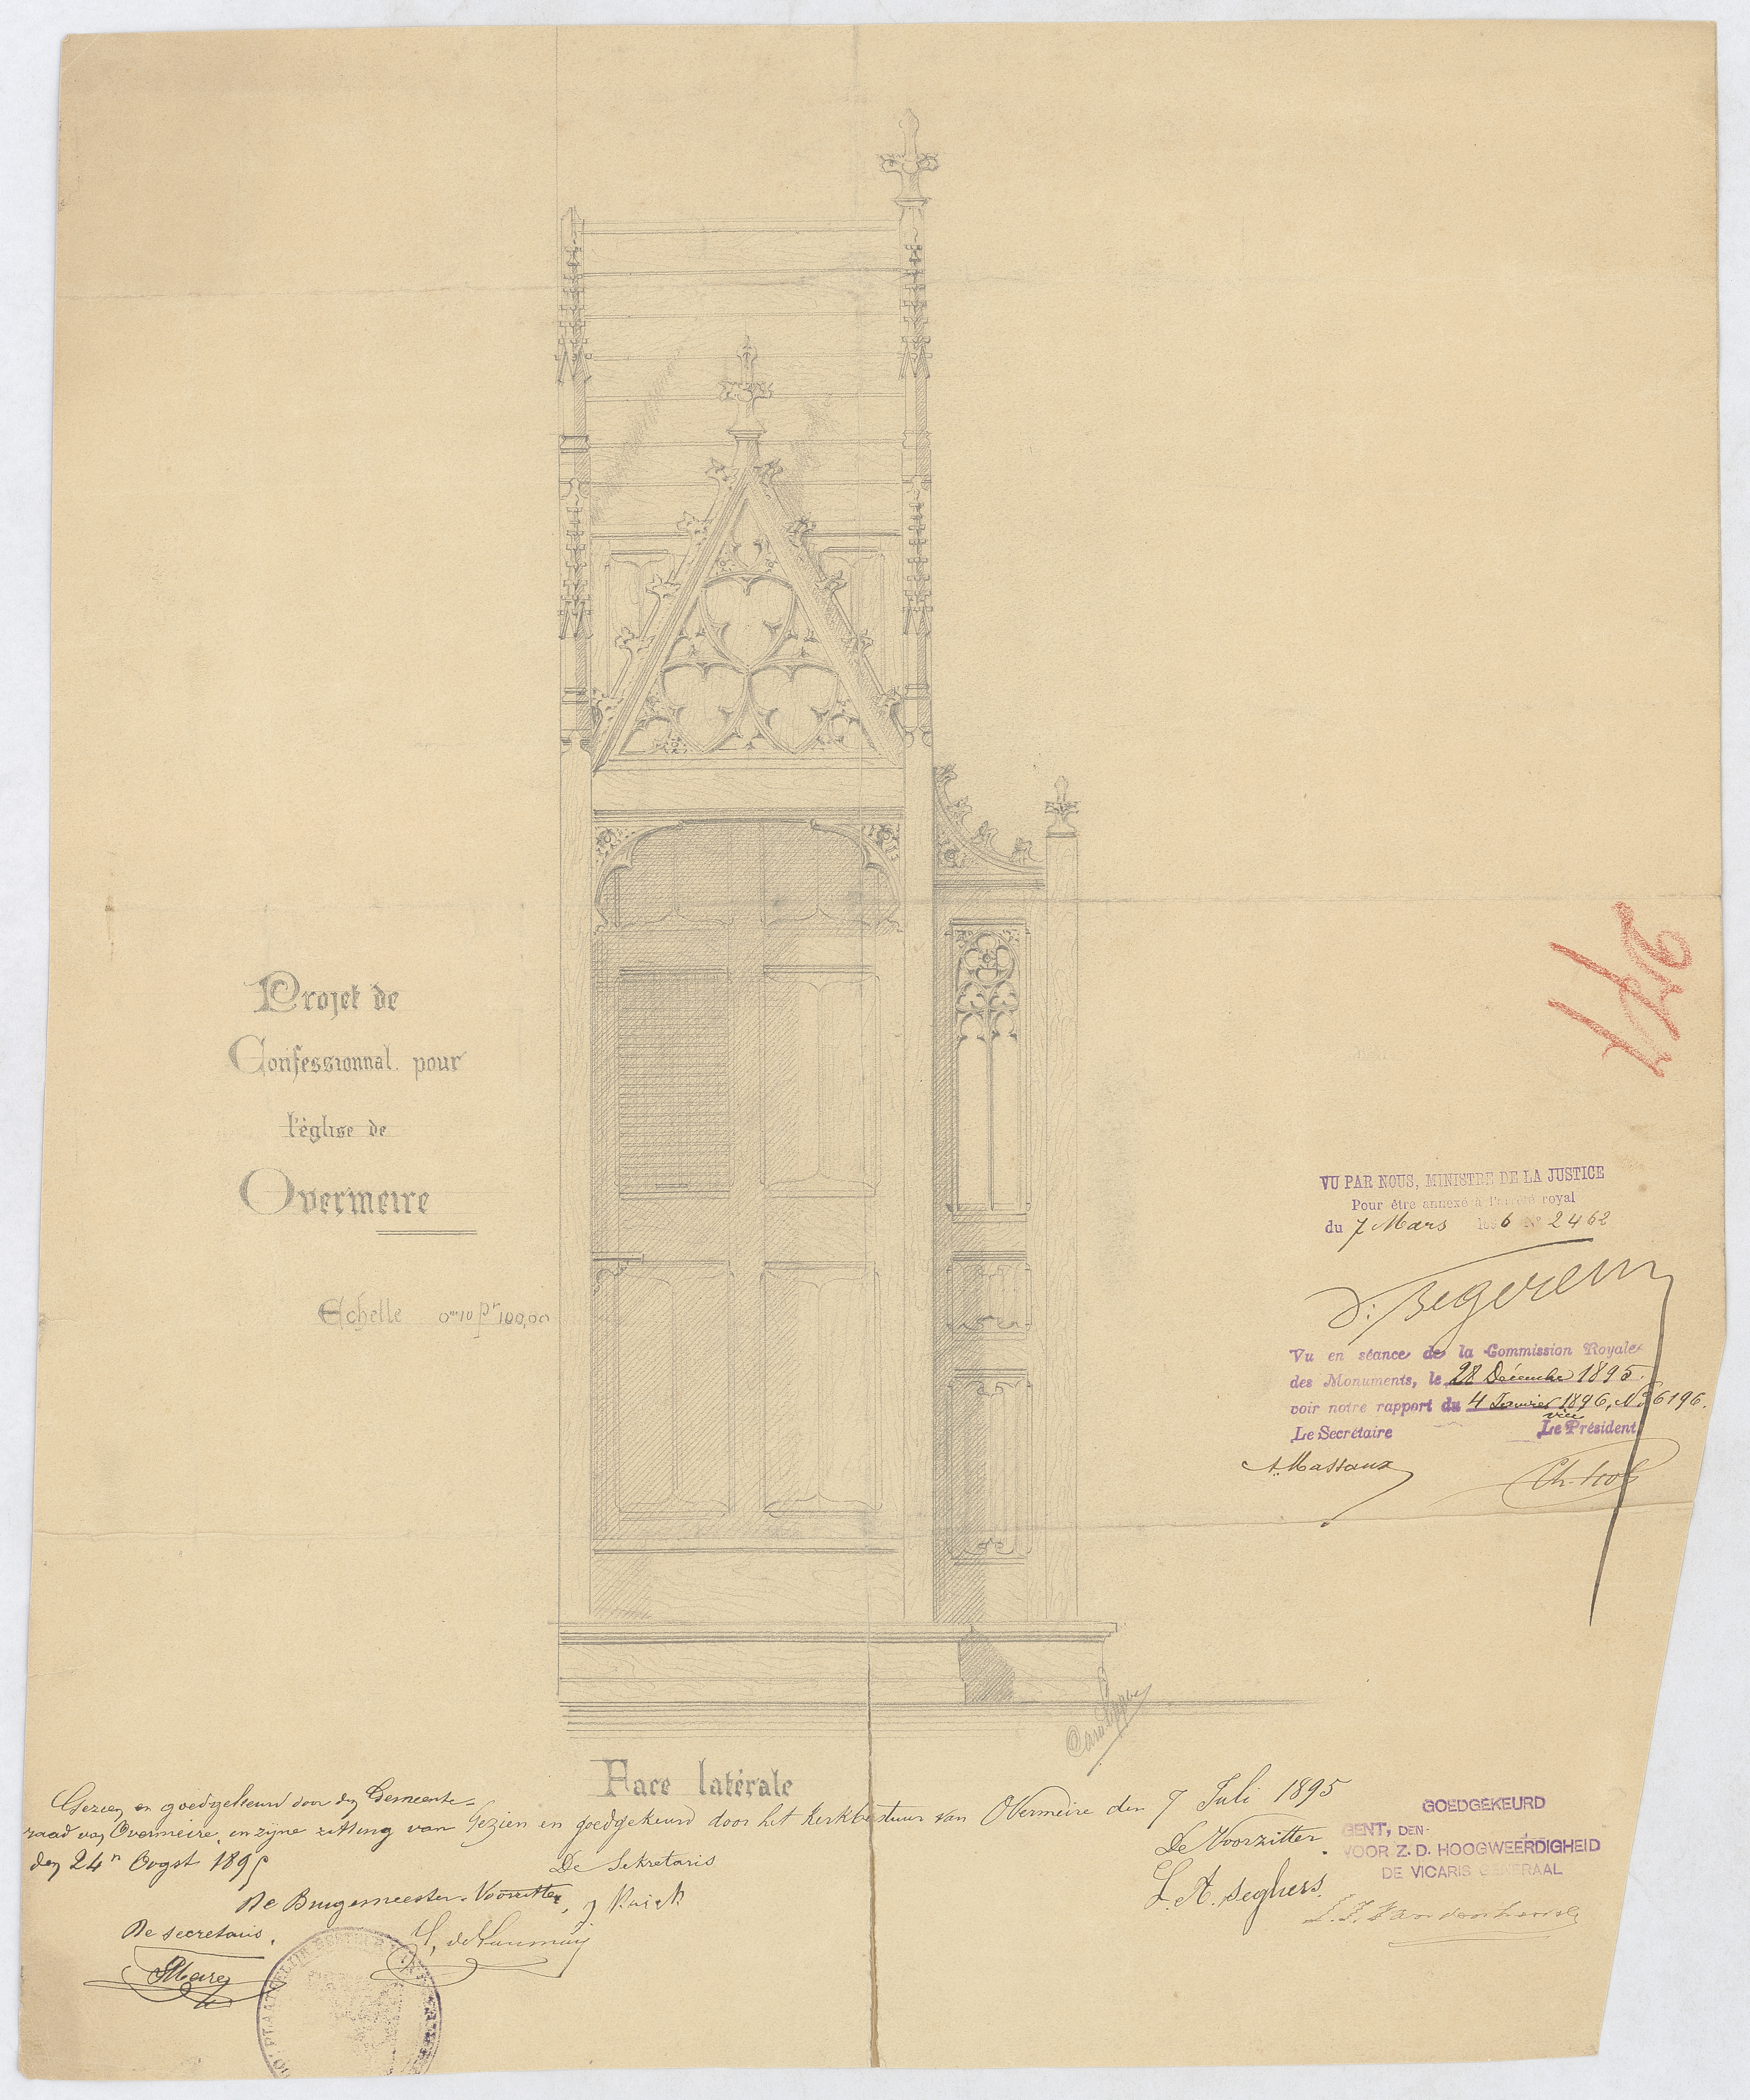 Projet de
Confessionnal pour
l'église de
Overmeire
Echelle 0m10 pr 100,00
VU PAR NOUS, MINISTRE DE LA JUSTICE
Pour être annexé à l'arrêté royal
du 7 Mars 1896 No 2462
Vu en séance de la Commission Royale
des Monuments, le 28 Décembre 1895.
voir notre rapport du 4 Janvier 1896, No 6196.
Le Secrétaire vice Le Président
A. Massaux
Face latérale
Gezien en goedgekeurd door den Gemeente-
raad van Overmeire, in zijne zitting van
den 24n Oogst 1895
De Burgemeester-Voorzitter,
De secretaris,
Gezien en goedgekeurd door het Kerkbestuur van Overmeire den 7 Juli 1895
De Sekretaris
De Voorzitter
L. A. Seghers.
GOEDGEKEURD
GENT, DEN
VOOR Z. D. HOOGWEERDIGHEID
DE VICARIS GENERAAL